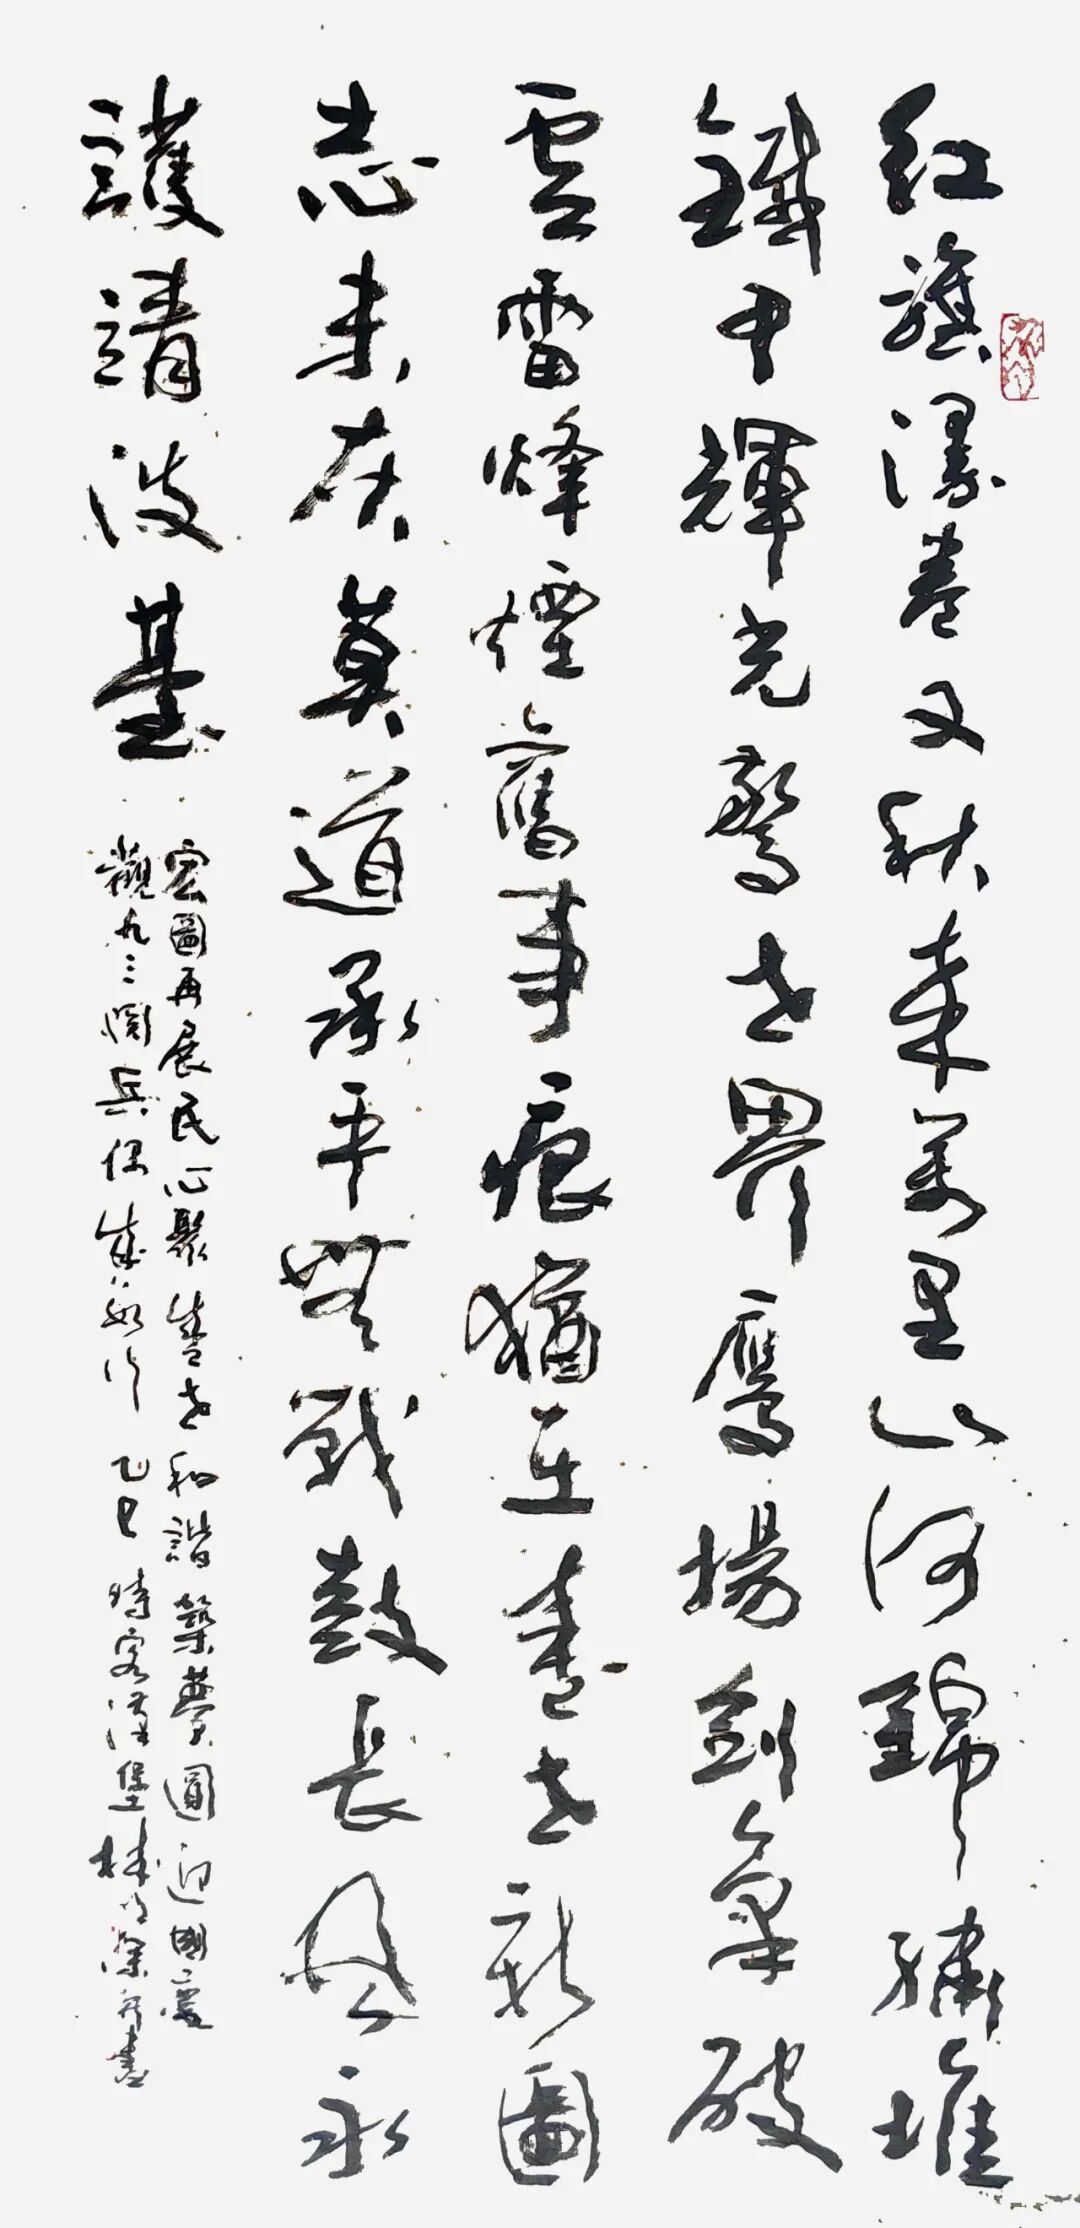 紅旗漫卷又秋來萬里山河錦繡堆
鐵甲輝光驚世界鷹揚劍氣破
雲雷烽煙舊事痕猶在盛世新圖
志未灰莫道承平無戰鼓長風永
護靖波臺
宏圖再展民心聚盛世和諧築夢圓迎國慶
觀九三閱兵偶 作 乙巳 時客漢堡 書